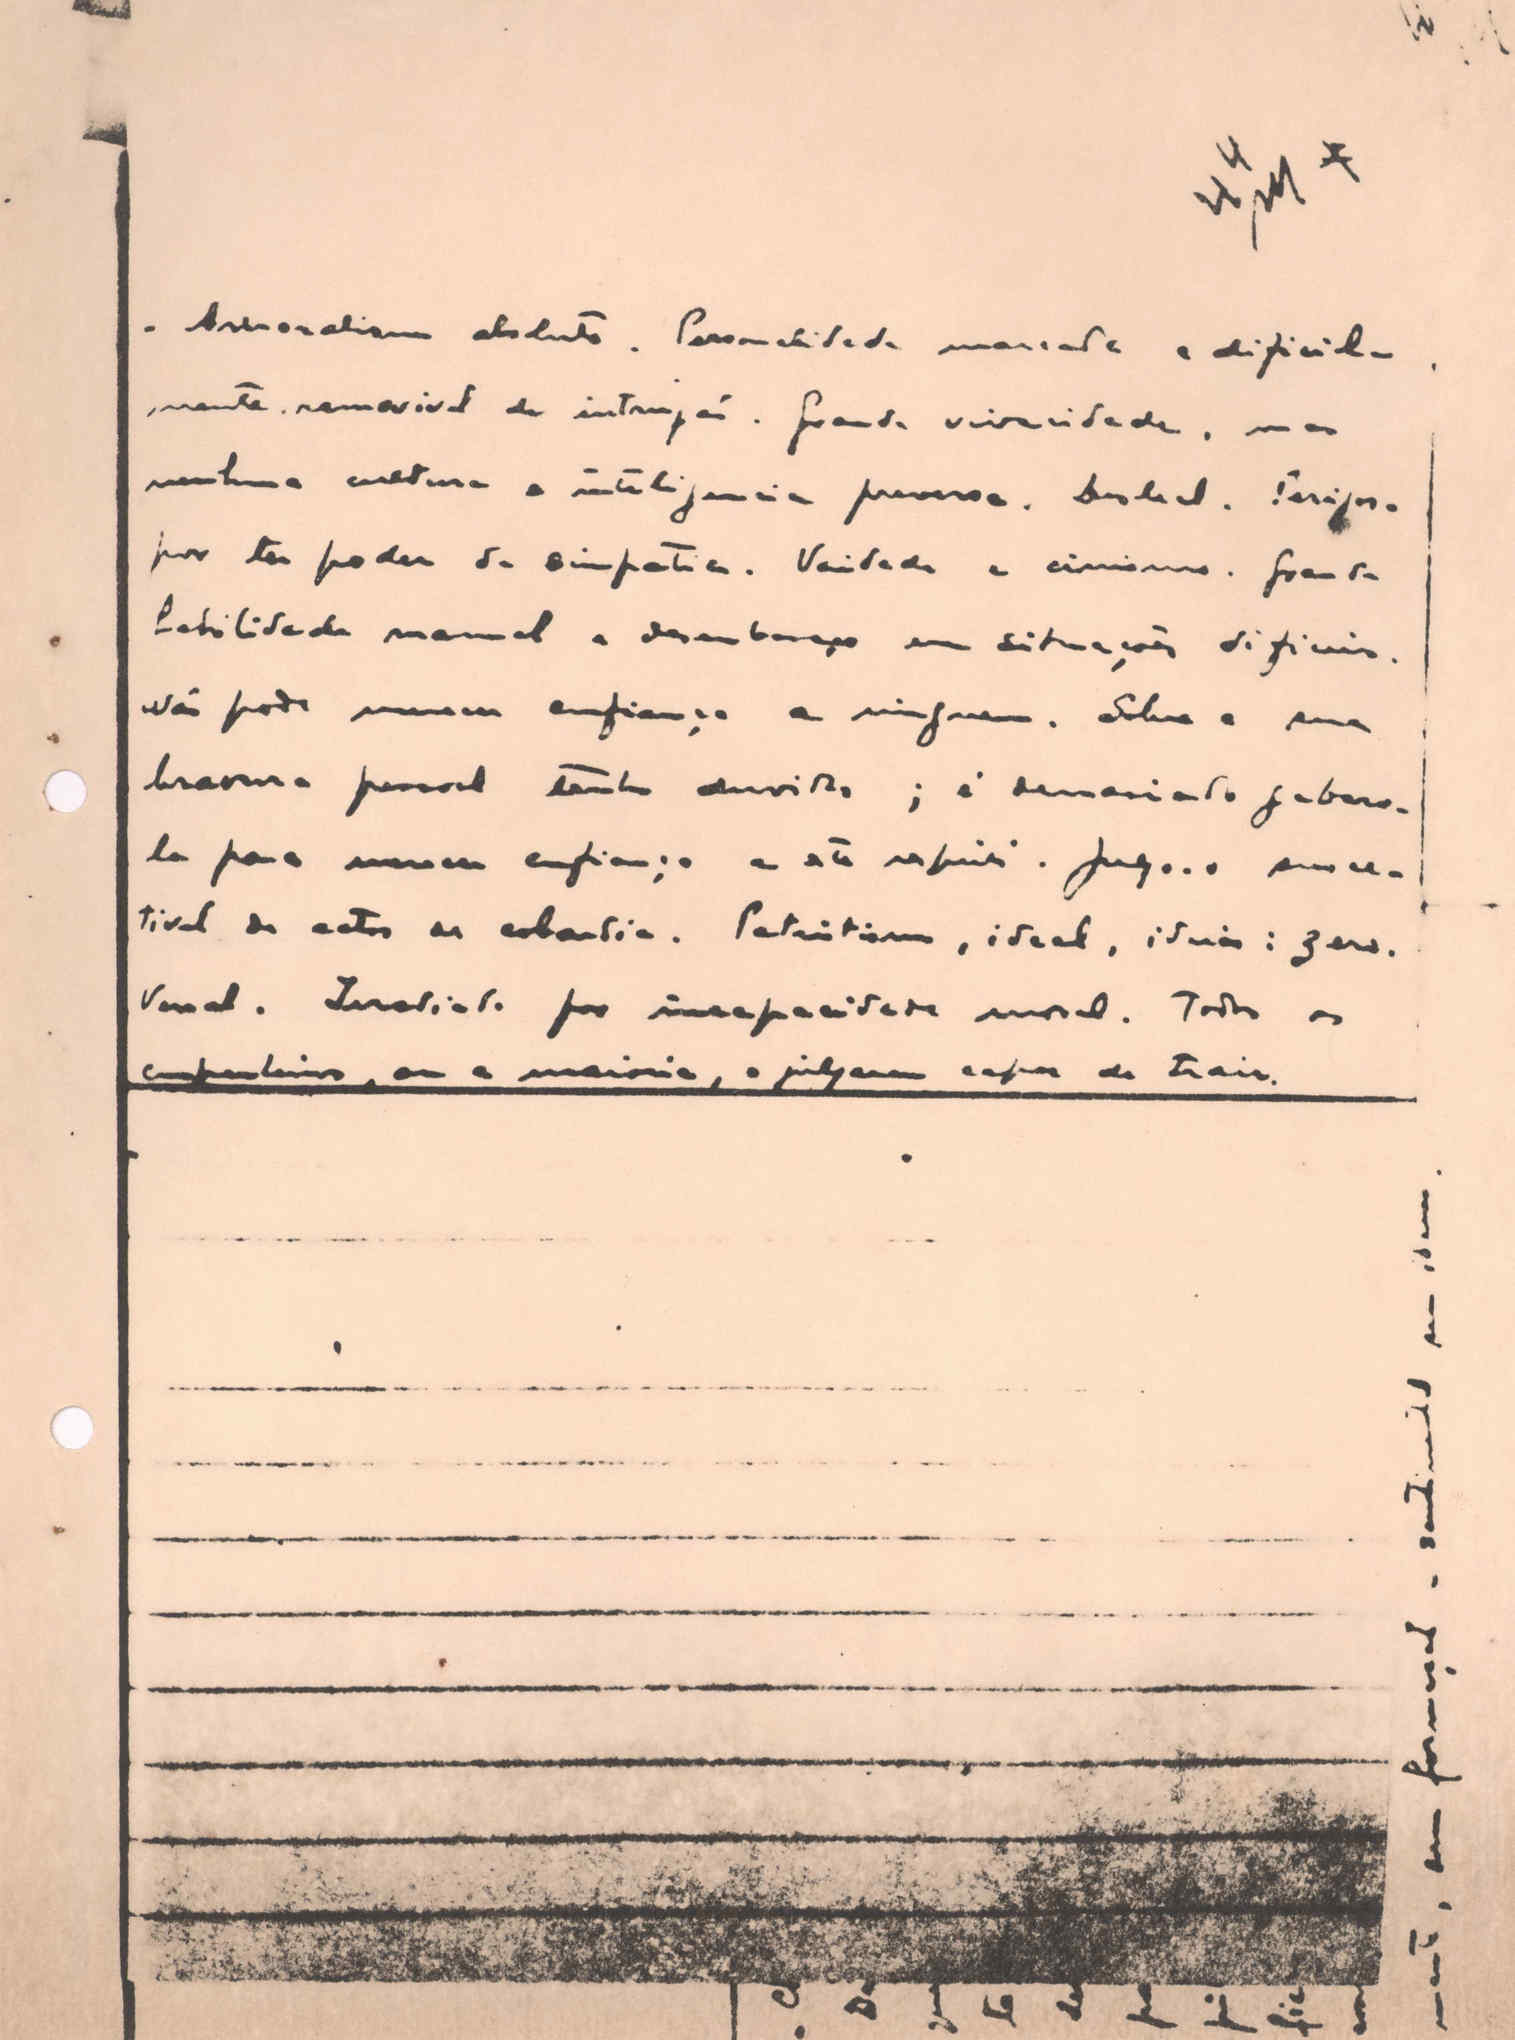 - Amoralismo absoluto. Personalidade marcada e dificil-
mente removivel da intrujice. Grande vivacidade, mas
nenhuma cultura e inteligencia perversa. Desleal. Perigoso
por ter poder de simpatia. Vaidade e cinismo. Grande
habilidade manual e desembaraço em situações dificeis.
Não pode merecer confiança a ninguem. Sobre a sua
bravura pessoal tenho duvidas; é demasiado gabaro-
la para merecer confiança a este respeito. Julgo-o suscep-
tivel de actos de cobardia. Patriotismo, ideal, ideias: zero.
Venal. Irradiado por incapacidade moral. Todos os
companheiros, ou a maioria, o julgavam capaz de trair.
mente, em formação - sentimental sem ideias.